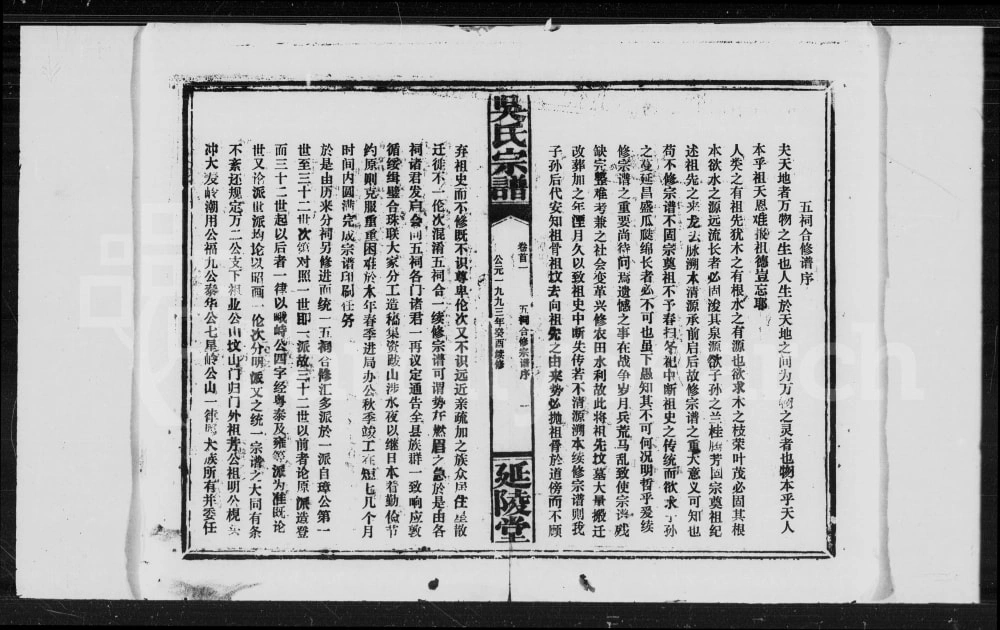 五祠合修谱序
夫天地者万物之生也人生於天地之间为万物之灵者也物本乎天人
本乎祖天恩难报祖德豈忘耶
人类之有祖先犹木之有根水之有源也欲求木之枝荣叶茂必固其根
本欲水之源远流长者必固浚其泉源欲子孙之兰桂腾芳固宗奠祖纪
述祖先之来龙去脉溯木清源承前启后故修宗谱之重大意义可知也
苟不修宗谱不固宗奠祖不予春扫冬祀中断祖史之传统而欲求子孙
之蔓延昌盛瓜瓞绵长者必不可也虽下愚知其不可何况明哲乎爰续
修宗谱之重要尚待问焉遗憾之事在战争岁月兵荒马乱致使宗谱残
缺完整难考兼之社会变革兴修农田水利故此将祖先坟墓大量搬迁
改葬加之年湮月久以致祖史中断失传若不清源溯本续修宗谱则我
子孙后代安知祖骨祖坟去向祖先之由来势必抛祖骨於道傍而不顾
吳氏宗譜
卷首一
五祠合修宗谱序
一
公元一九九三年癸酉续修
延陵堂
弃祖史而不修既不识尊卑伦次又不识远近亲疏加之族众居住星散
迁徙不一伦次混淆五祠合一续修宗谱可谓势在燃眉之急於是由各
祠诸君发启会同五祠各门诸君一再议定通告全县族群一致响应敦
循绥缉璧合珠联大家分工造稿集资跋山涉水夜以继日本着勤俭节
约原则克服重重困难於本年春季进局办公秋季竣工在短七几个月
时间内圆满完成宗谱印刷任务
於是由历来分祠另修进而统一五祠合修汇多派於一派自璋公第一
世至三十二世次第对照一世即一派故三十二世以前者论原派造登
而三十二世起以后者一律以峨峙公四字经粤泰及雍等派为准既论
世又论派世派均论以昭画一伦次分明派文之统一宗谱之大同有条
不紊还规定万二公支下祖业公山坟山门归门外祖芳公祖明公棍安
冲大发岭潮用公福九公泰华公七星岭公山一律归大族所有并委任